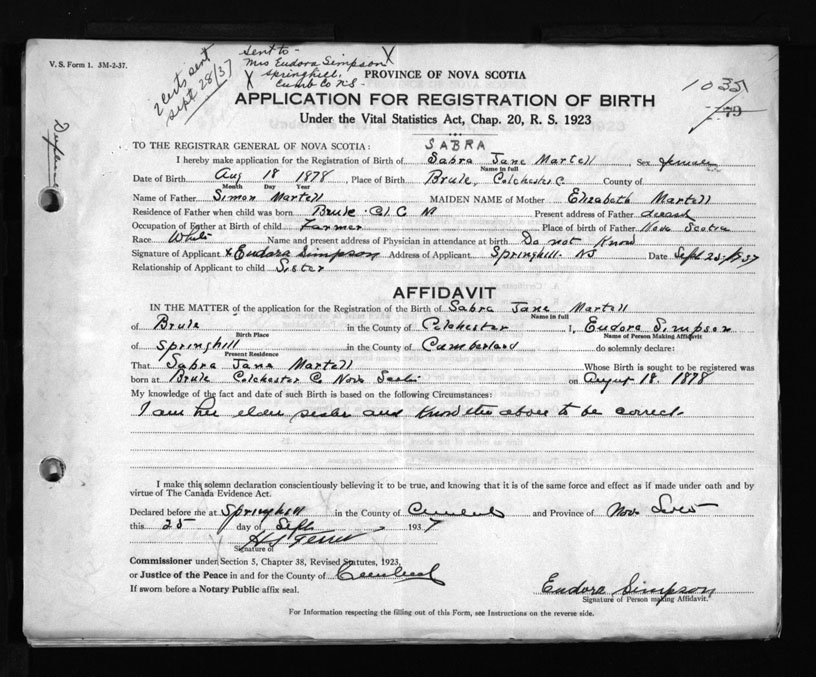 V. S. Form 1. 3M-2-37.
2 Certs sent
Sept 28/37
Sent to -
Mrs Eudora Simpson X
X Springhill,
Cumb Co N.S -
PROVINCE OF NOVA SCOTIA
1035
79
APPLICATION FOR REGISTRATION OF BIRTH
Under the Vital Statistics Act, Chap. 20, R. S. 1923
SABRA
TO THE REGISTRAR GENERAL OF NOVA SCOTIA:
I hereby make application for the Registration of Birth of Sabra Jane Martell Sex female
Name in full
Date of Birth Aug 18 1878, Place of Birth Brule, Colchester C County of
Month Day Year
Name of Father Simon Martell MAIDEN NAME of Mother Elizabeth Martell
Residence of Father when child was born Brule Col. C NS Present address of Father deceast
Occupation of Father at Birth of child Farmer Place of birth of Father Nova Scotia
Race White Name and present address of Physician in attendance at birth Do not Know
Signature of Applicant x Eudora Simpson Address of Applicant Springhill- NS Date Sept 25 1937
Relationship of Applicant to child Sister
AFFIDAVIT
IN THE MATTER of the application for the Registration of the Birth of Sabra Jane Martell
Name in full
of Brule in the County of Colchester I, Eudora Simpson
Birth Place Name of Person Making Affidavit
of Springhill in the County of Cumberland do solemnly declare:
Present Residence
That Sabra Jane Martell Whose Birth is sought to be registered was
born at Brule Colchester Co Nova Scotia on August 18. 1878
My knowledge of the fact and date of such Birth is based on the following Circumstances:
I am her elder sister and Know the above to be correct.
I make this solemn declaration conscientiously believing it to be true, and knowing that it is of the same force and effect as if made under oath and by
virtue of The Canada Evidence Act.
Declared before me at Springhill in the County of Cumberland and Province of Nova Scotia
this 25 day of Sept 1937
Signature of
Commissioner under Section 5, Chapter 38, Revised Statutes, 1923,
or Justice of the Peace in and for the County of Cumberland
If sworn before a Notary Public affix seal.
Eudora Simpson
Signature of Person making Affidavit.
For Information respecting the filling out of this Form, see Instructions on the reverse side.